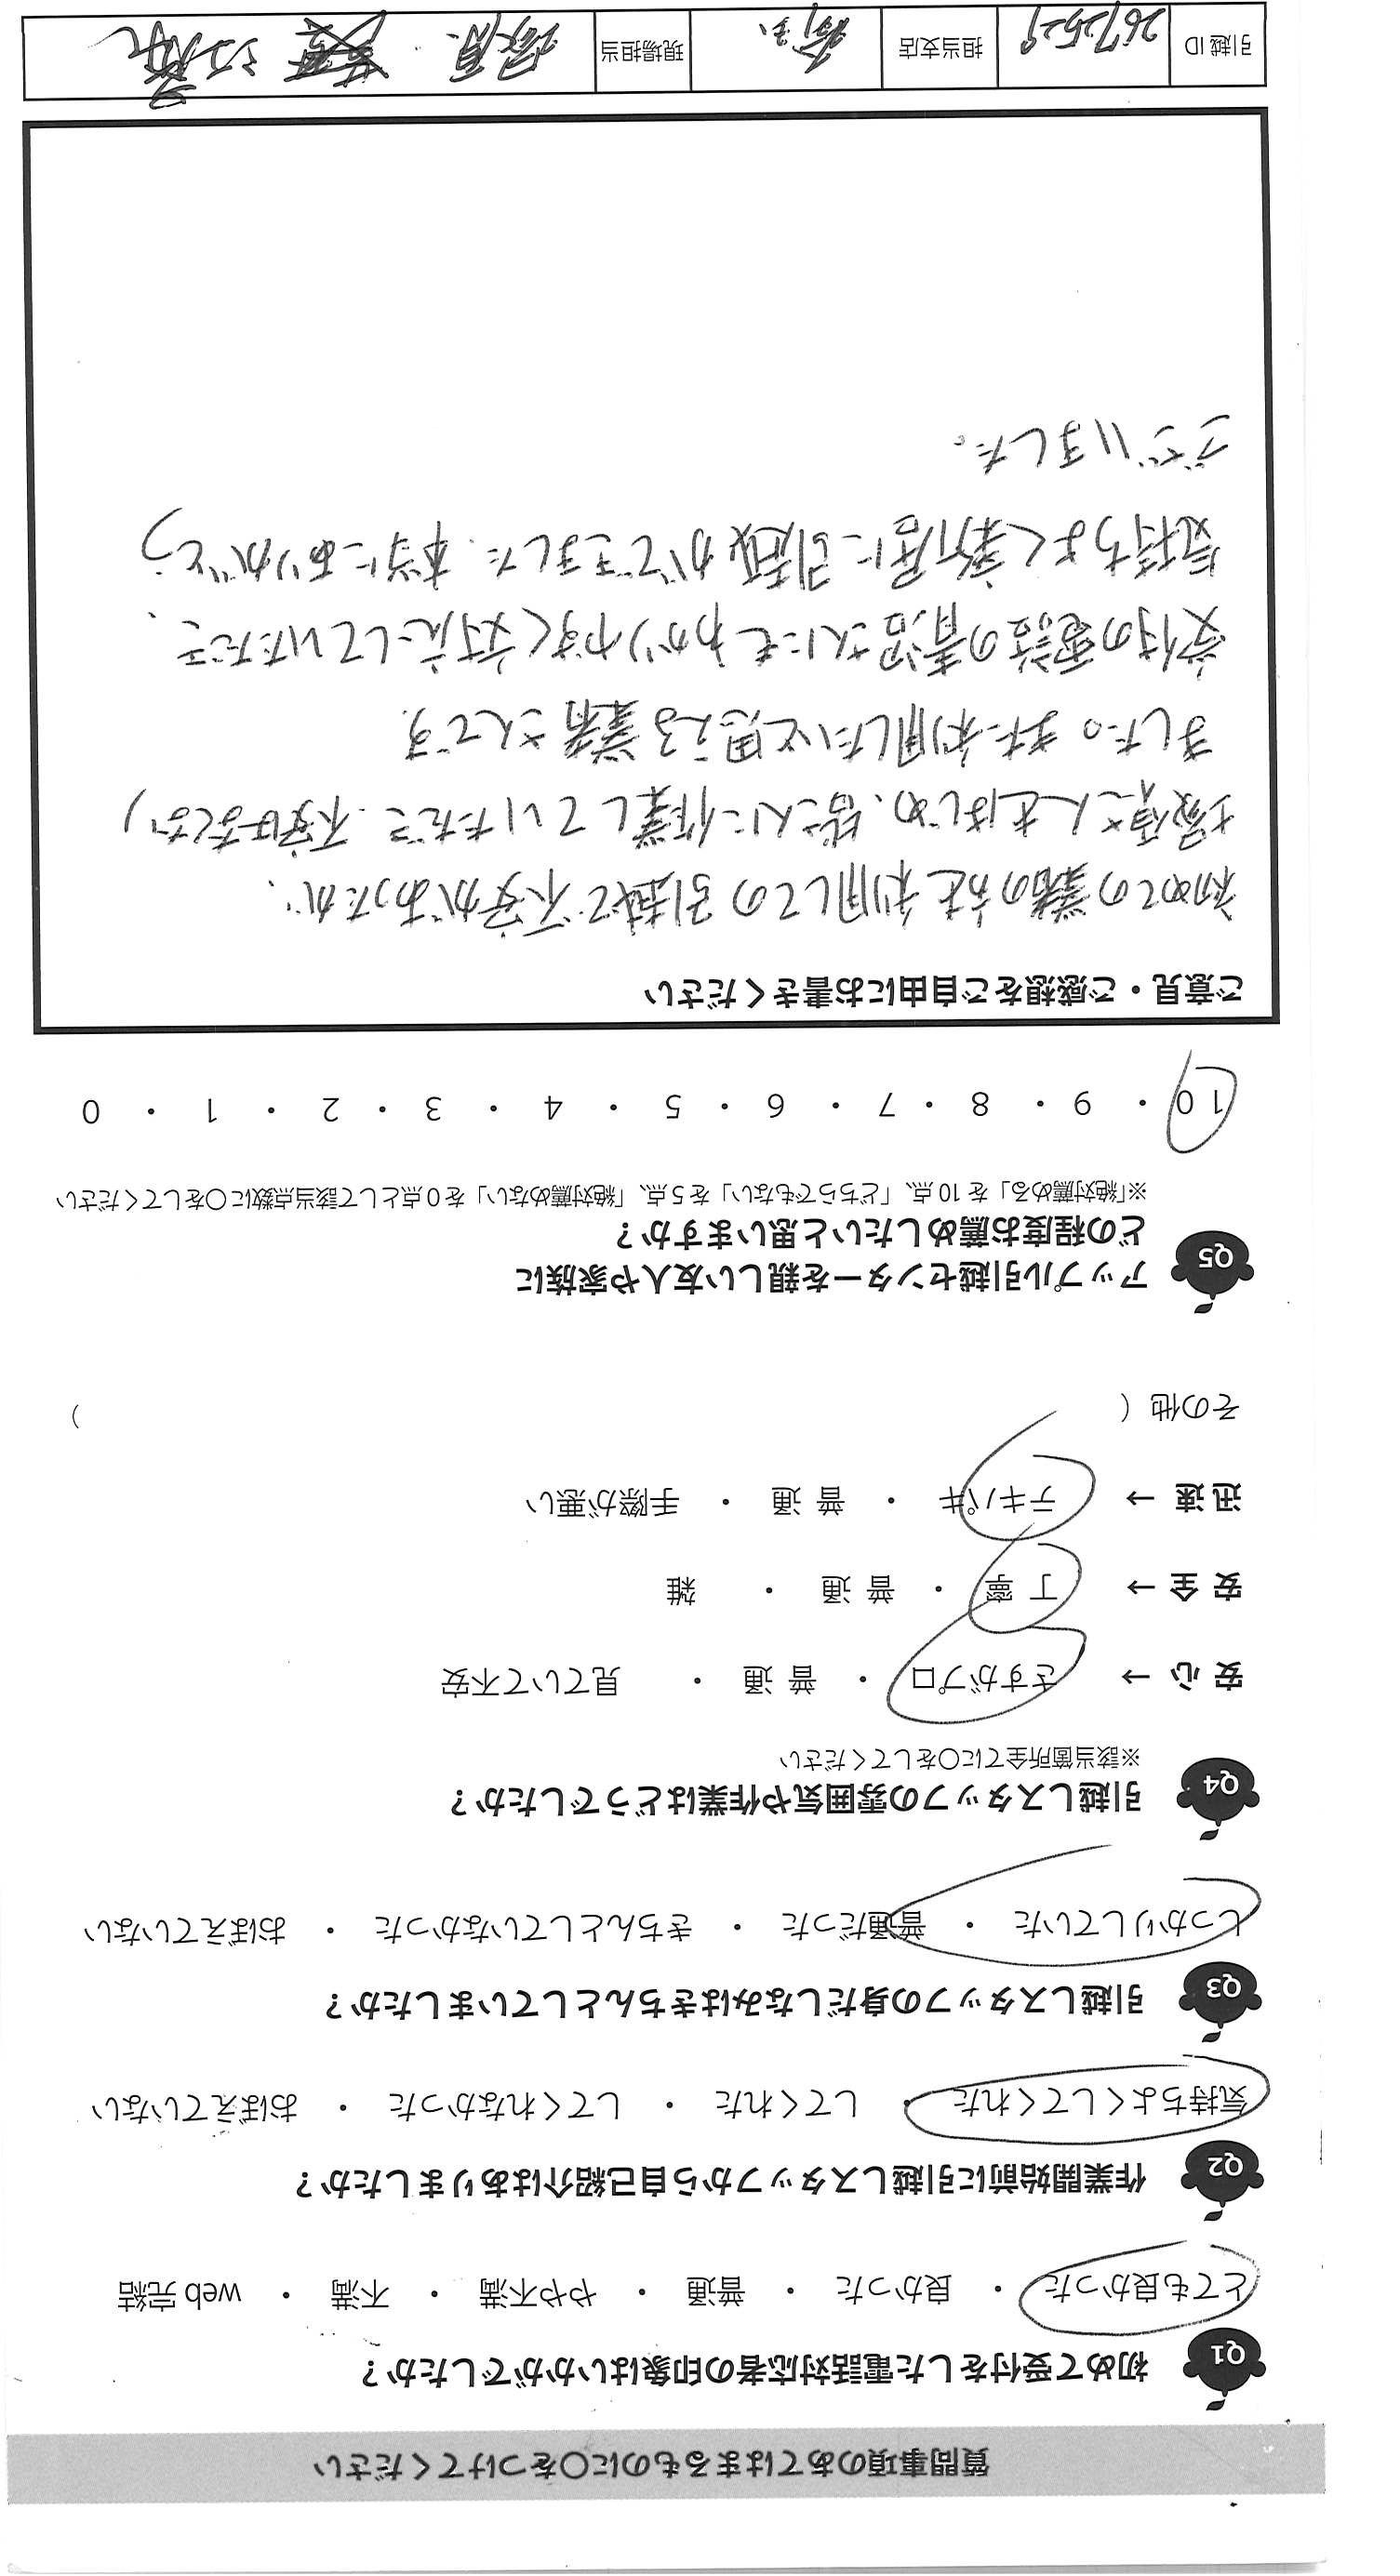 質問事項のあてはまるものに〇をつけてください
Q1 初めて受付をした電話対応者の印象はいかがでしたか？
とても良かった ・ 良かった ・ 普通 ・ やや不満 ・ 不満 ・ web 完結
Q2 作業開始前に引越しスタッフから自己紹介はありましたか？
気持ちよくしてくれた ・ してくれた ・ してくれなかった ・ おぼえていない
Q3 引越しスタッフの身だしなみはきちんとしていましたか？
しっかりしていた ・ 普通だった ・ きちんとしていなかった ・ おぼえていない
Q4 引越しスタッフの雰囲気や作業はどうでしたか？
※該当箇所全てに〇をしてください
安 心 → さすがプロ ・ 普 通 ・ 見ていて不安
安 全 → 丁 寧 ・ 普 通 ・ 雑
迅 速 → テキパキ ・ 普 通 ・ 手際が悪い
その他（ ）
Q5 アップル引越センターを親しい友人や家族に
どの程度お薦めしたいと思いますか？
※「絶対薦める」を 10 点、「どちらでもない」を 5 点、「絶対薦めない」を 0 点として該当点数に〇をしてください
10 ・ 9 ・ 8 ・ 7 ・ 6 ・ 5 ・ 4 ・ 3 ・ 2 ・ 1 ・ 0
ご意見・ご感想をご自由にお書きください
初めての業者の方を利用しての引越で不安があったが、
塚原さんをはじめ、皆さんに作業していただき、不安はなくなり
ました。また利用したいと思える業者さんです。
受付の電話の青沼さんにもわかりやすく対応していただき、
気持ちよく新居に引越ができました。本当にありがとう
ございました。
引越 ID 2672529 担当支店 現場担当 塚原